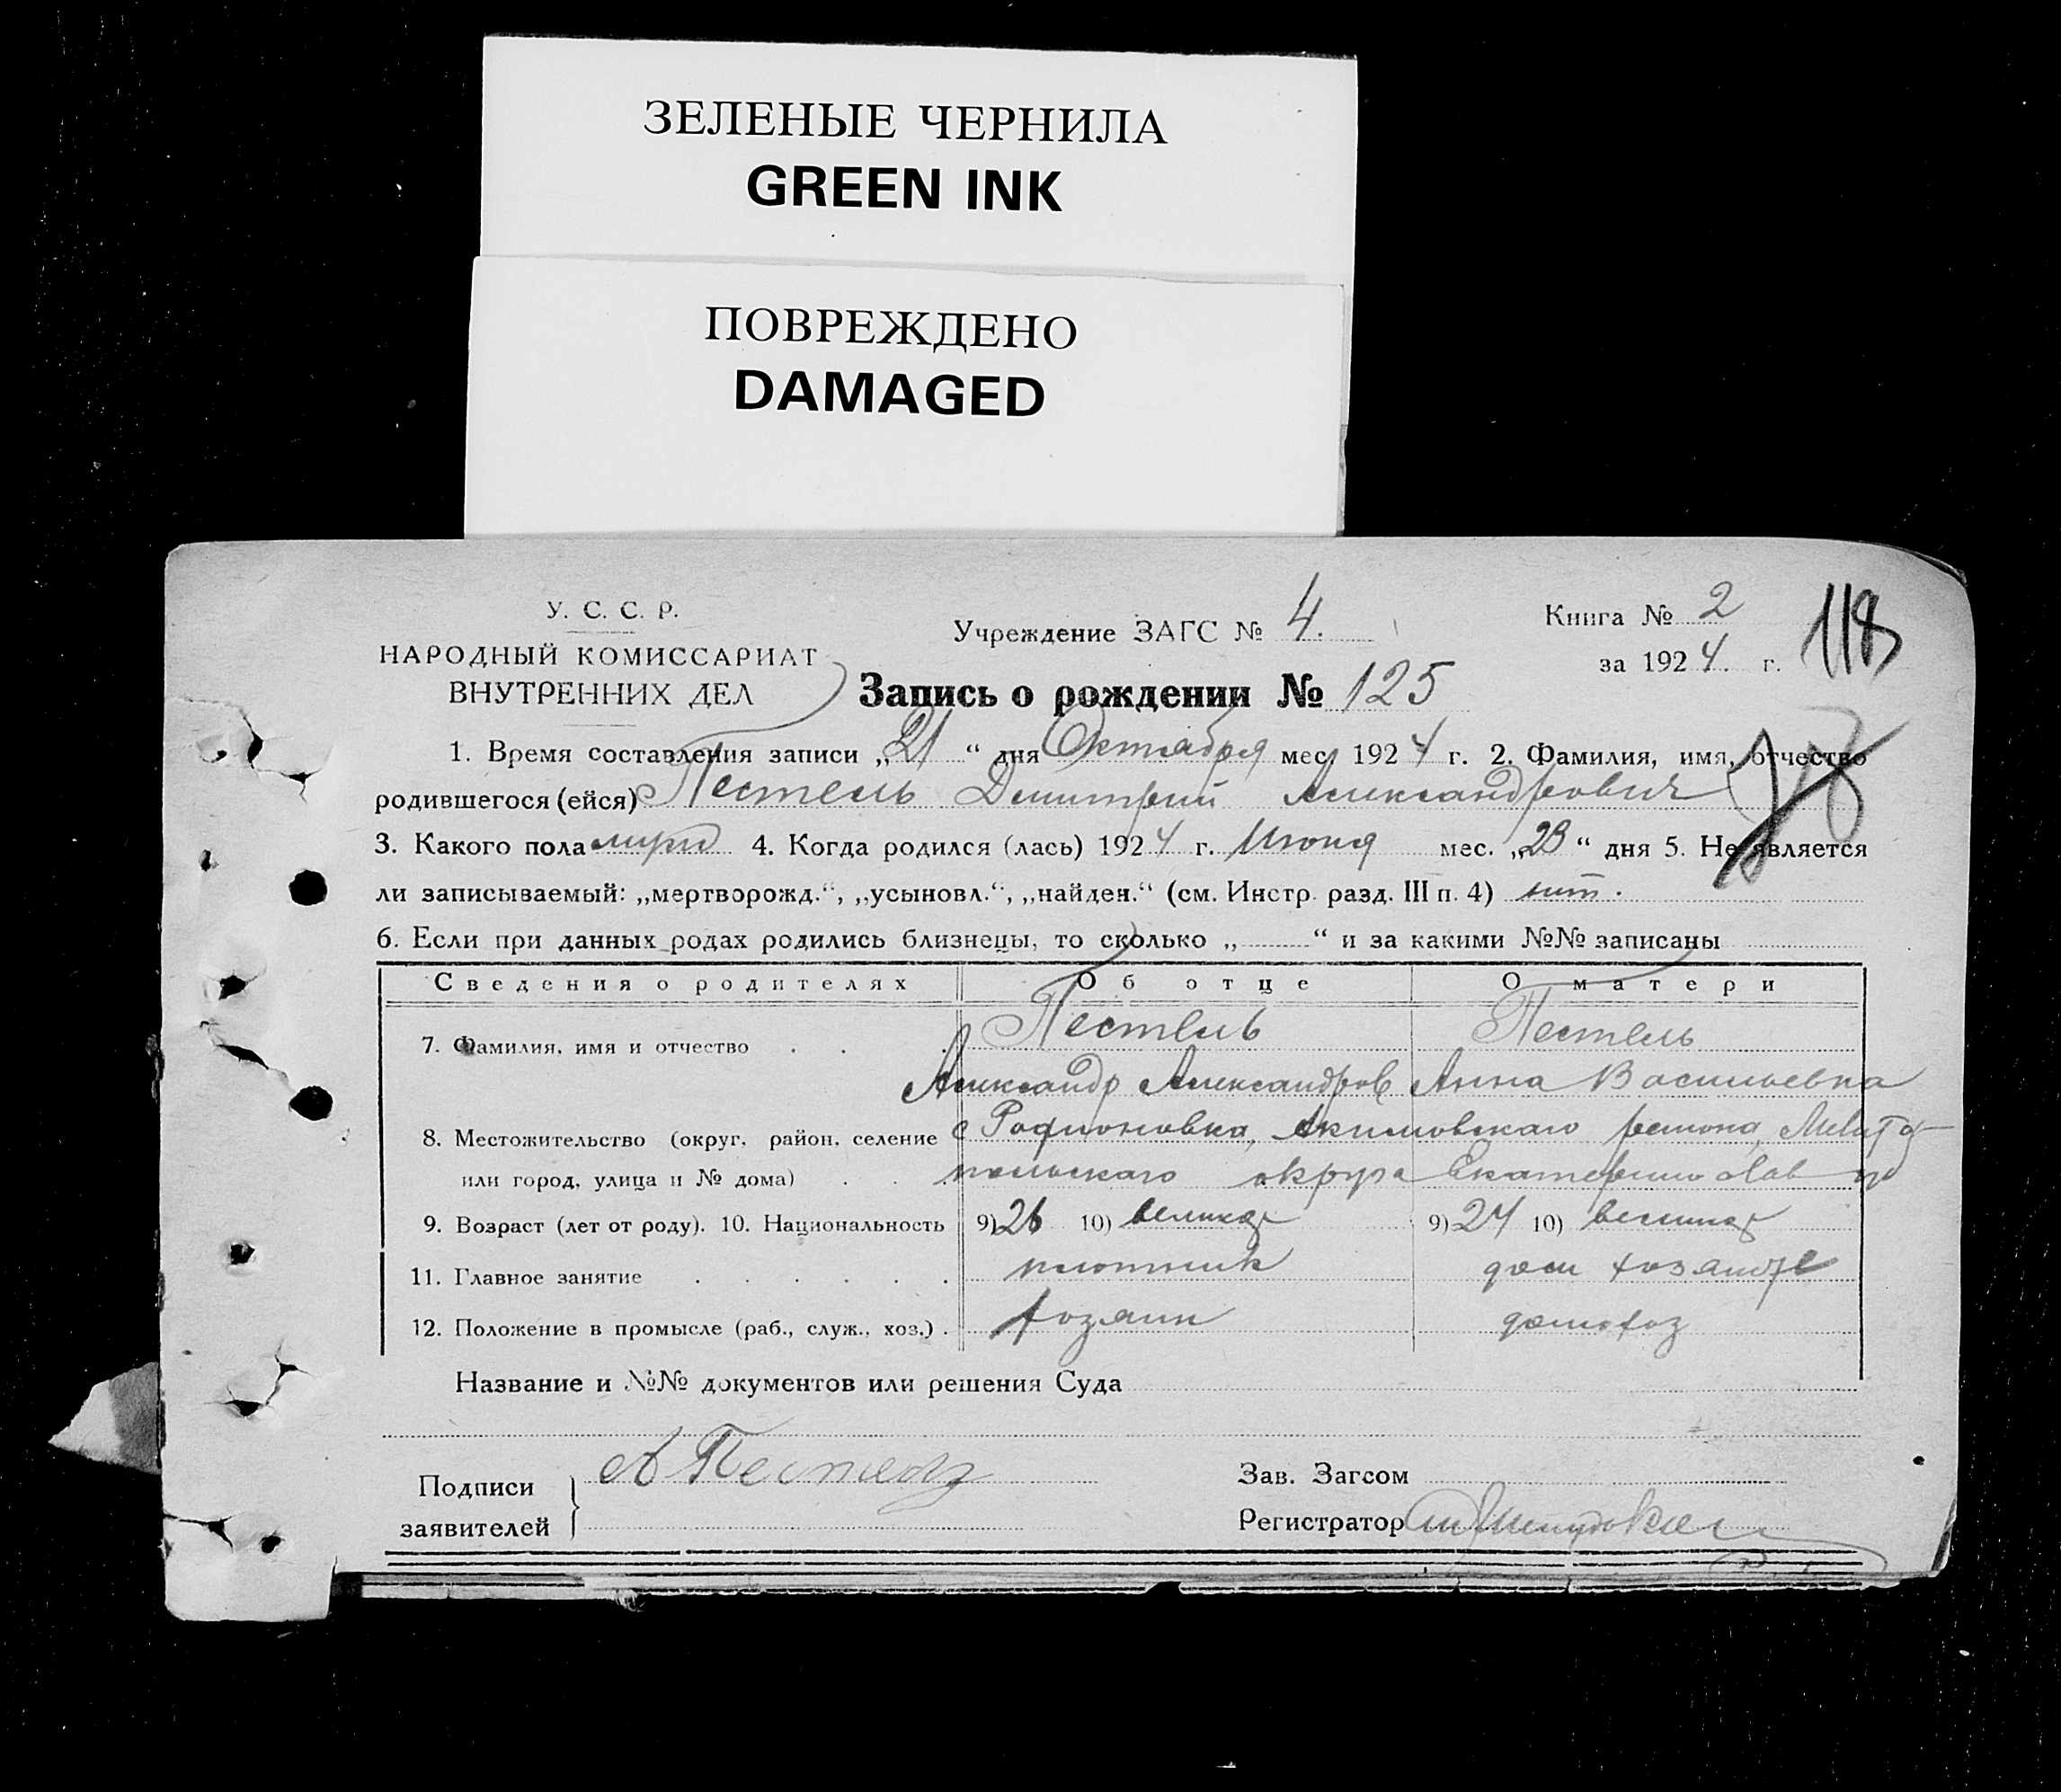 ЗЕЛЕНЫЕ ЧЕРНИЛА
GREEN INK
ПОВРЕЖДЕНО
DAMAGED
У. С. С. Р.
НАРОДНЫЙ КОМИССАРИАТ
ВНУТРЕННИХ ДЕЛ
Учреждение ЗАГС № 4.
Книга № 2
за 1924. г.
118
Запись о рождении № 125
1. Время составления записи „21“ дня Октября мес. 1924 г. 2. Фамилия, имя, отчество
родившегося (ейся) Пестель Димитрий Александрович
3. Какого пола 4. Когда родился (лась) 1924 г. Июня мес. „23“ дня 5. Не является
ли записываемый: „мертворожд.“, „усыновл.“, „найден.“ (см. Инстр. разд. III п. 4) нет.
6. Если при данных родах родились близнецы, то сколько „ “ и за какими №№ записаны
Сведения о родителях Об отце О матери
7. Фамилия, имя и отчество . . Пестель Пестель
Александр Александров Анна Васильевна
8. Местожительство (округ, район, селение с Родионовка, Акимовскаго района, Мелито
или город, улица и № дома) . . . польскаго округа Екатеринослав
9. Возраст (лет от роду). 10. Национальность 9) 26 10) великор 9) 24 10) великор
11. Главное занятие . . . . . . плотник дом хозяйке
12. Положение в промысле (раб., служ., хоз.) . хозяин домохоз
Название и №№ документов или решения Суда
Подписи
заявителей
А Пестель
Зав. Загсом
Регистратор